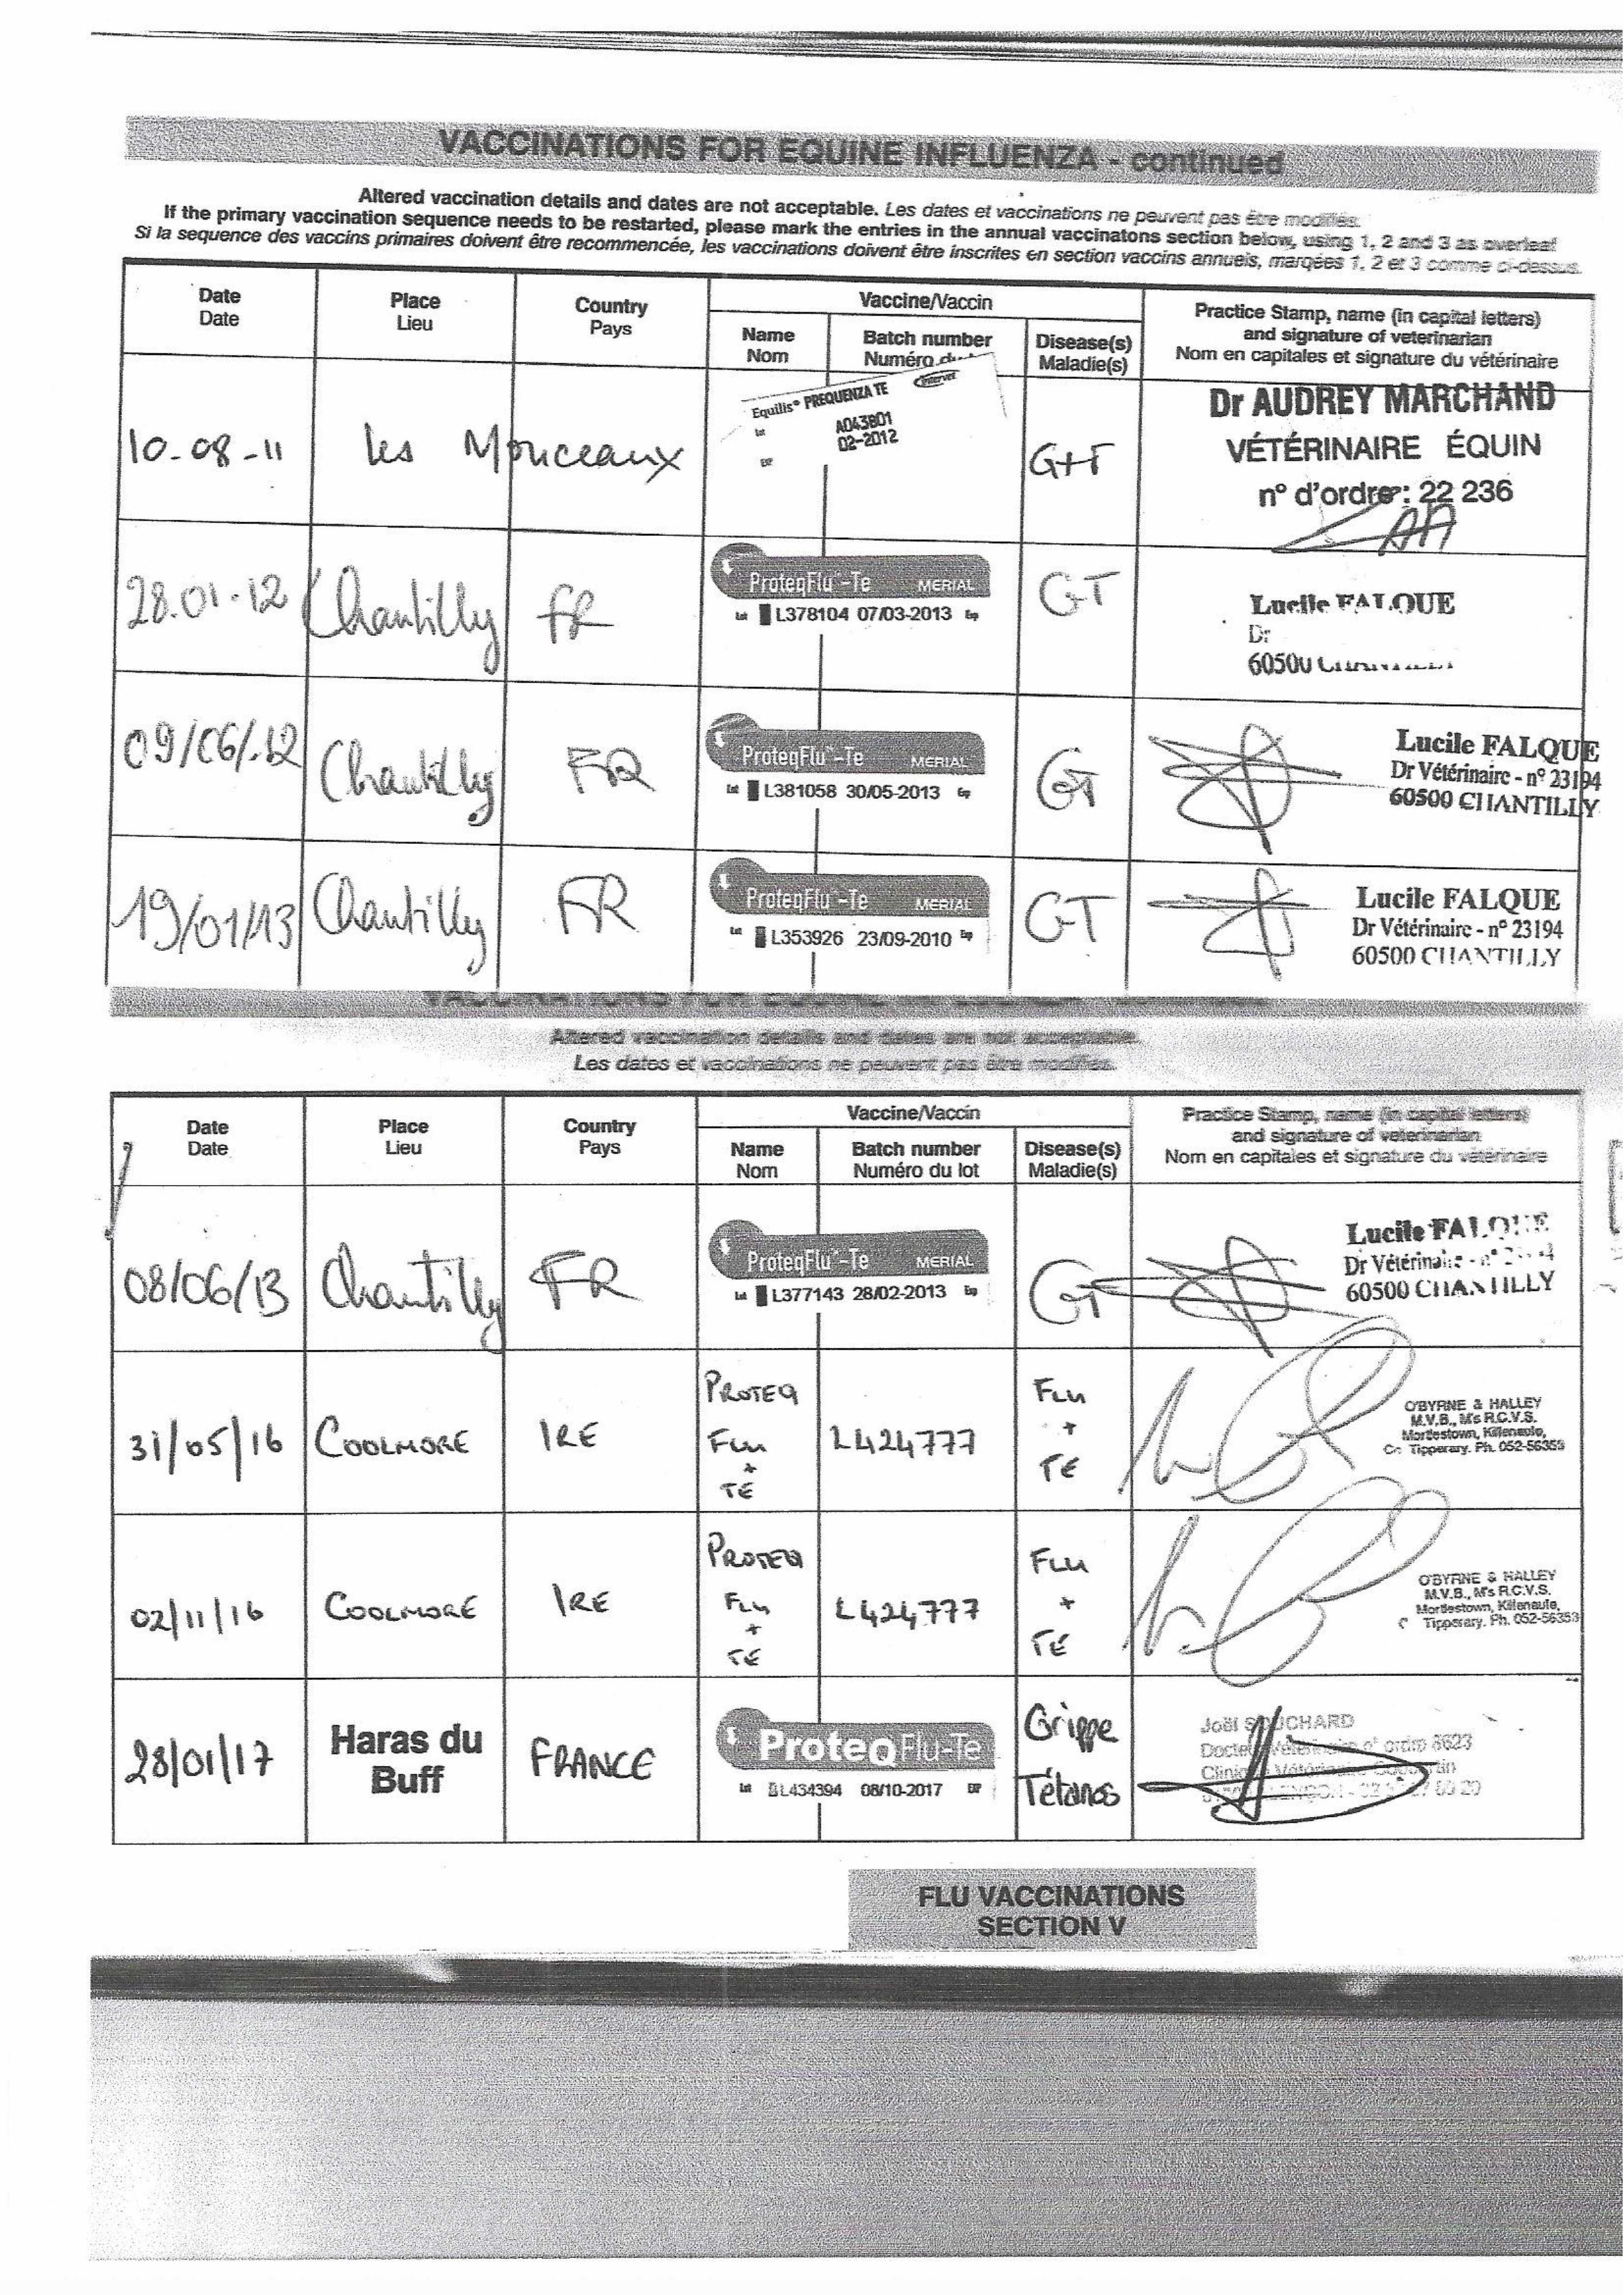 VACCINATIONS FOR EQUINE INFLUENZA - continued
Altered vaccination details and dates are not acceptable. Les dates et vaccinations ne peuvent pas être modifiés.
If the primary vaccination sequence needs to be restarted, please mark the entries in the annual vaccinatons section below, using 1, 2 and 3 as overleaf
Si la sequence des vaccins primaires doivent être recommencée, les vaccinations doivent être inscrites en section vaccins annuels, marqées 1, 2 et 3 comme ci-dessus.
Date
Date
Place
Lieu
Country
Pays
Vaccine/Vaccin
Name
Nom
Batch number
Numéro
Disease(s)
Maladie(s)
Practice Stamp, name (in capital letters)
and signature of veterinarian
Nom en capitales et signature du vétérinaire
10-08-11
Les Monceaux
Equilis® PREQUENZA TE Intervet
Lot A043B01
EXP 02-2012
G+T
Dr AUDREY MARCHAND
VÉTÉRINAIRE ÉQUIN
n° d'ordre: 22 236
28.01.12
Chantilly
FR
ProteqFlu-Te MERIAL
Lot L378104 07/03-2013 Exp
GT
Lucile FALQUE
Dr
60500
09/06/12
Chantilly
FR
ProteqFlu-Te MERIAL
Lot L381058 30/05-2013 Exp
GT
Lucile FALQUE
Dr Vétérinaire - n° 23194
60500 CHANTILLY
19/01/13
Chantilly
FR
ProteqFlu-Te MERIAL
Lot L353926 23/09-2010 Exp
GT
Lucile FALQUE
Dr Vétérinaire - n° 23194
60500 CHANTILLY
Altered vaccination details and dates are not acceptable.
Les dates et vaccinations ne peuvent pas être modifiés.
Date
Date
Place
Lieu
Country
Pays
Vaccine/Vaccin
Name
Nom
Batch number
Numéro du lot
Disease(s)
Maladie(s)
Practice Stamp, name (in capital letters)
and signature of veterinarian
Nom en capitales et signature du vétérinaire
08/06/13
Chantilly
FR
ProteqFlu-Te MERIAL
Lot L377143 28/02-2013 Exp
GT
Lucile FALQUE
Dr Vétérinaire - n°
60500 CHANTILLY
31/05/16
COOLMORE
IRE
PROTEQ
FLU
+
TE
L424777
FLU
+
TE
O'BYRNE & HALLEY
M.V.B., M's R.C.V.S.
Mortlestown, Killenaule,
Co Tipperary. Ph. 052-56353
02/11/16
COOLMORE
IRE
PROTEQ
FLU
+
TE
L424777
FLU
+
TE
O'BYRNE & HALLEY
M.V.B., M's R.C.V.S.
Mortlestown, Killenaule,
C Tipperary. Ph. 052-56353
28/01/17
Haras du
Buff
FRANCE
ProteqFlu-Te
Lot L434394 08/10-2017 EXP
Grippe
Tétanos
Joël
Docteur Vétérinaire n° ordre 8623
Clinique Vétérinaire
FLU VACCINATIONS
SECTION V